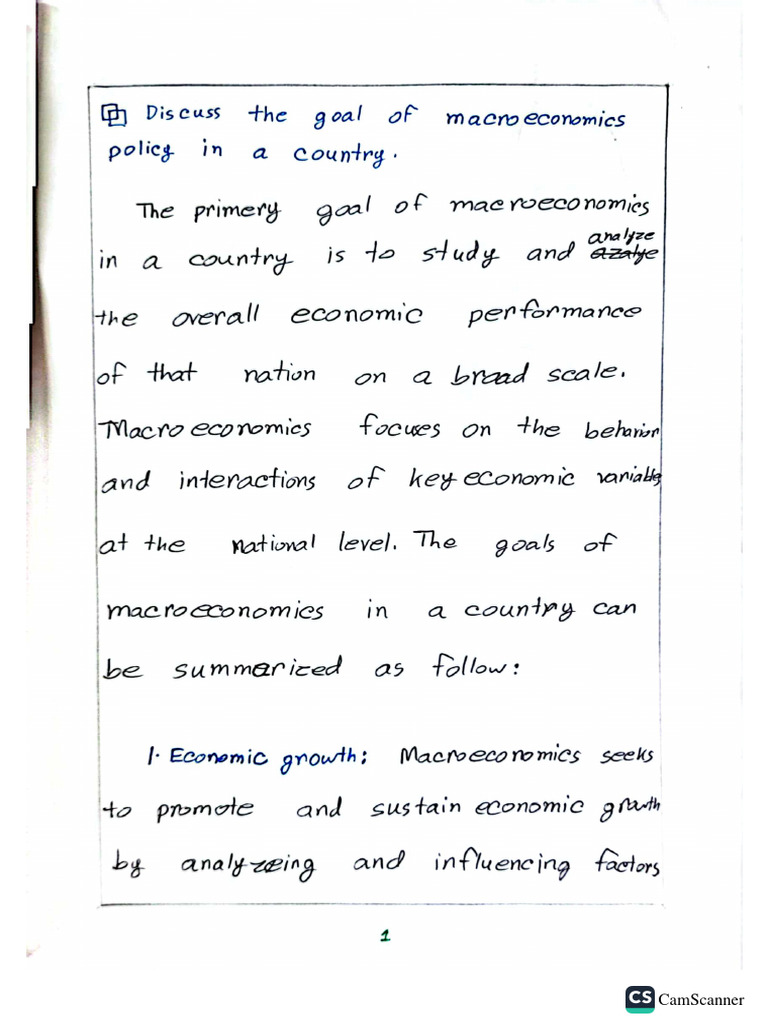 Discuss the goal of macroeconomics
policy in a country.
The primery goal of macroeconomics
in a country is to study and analyze
the overall economic performance
of that nation on a broad scale.
Macroeconomics focues on the behavior
and interactions of key economic variables
at the national level. The goals of
macroeconomics in a country can
be summarized as follow:
1. Economic growth: Macroeconomics seeks
to promote and sustain economic growth
by analyzeing and influencing factors
1
CS CamScanner